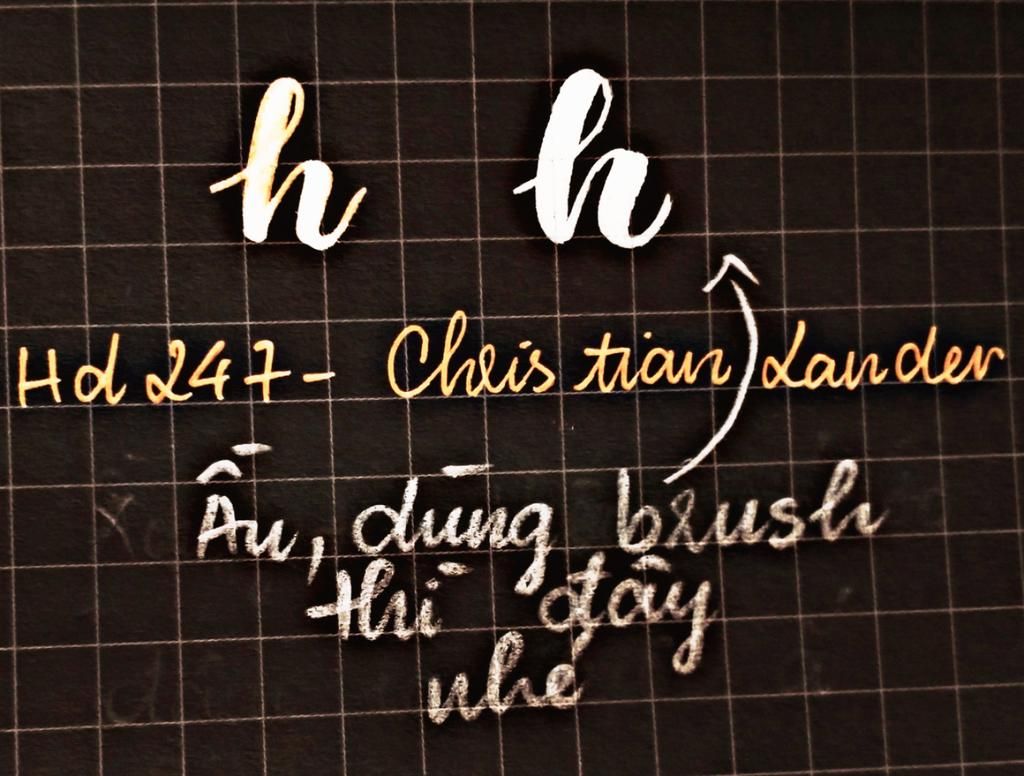 h h
Hd 247 - Christian Lander
Ấu, dùng brush
thì đây
nhe